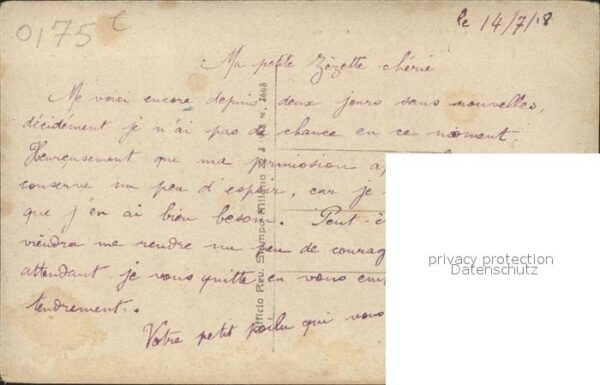 0175 c
le 14/7/18
Ma petite Zézette chérie
Me voici encore depuis deux jours sans nouvelles,
décidément je n'ai pas de chance en ce moment.
Heureusement que ma permission
conserve un peu d'espoir, car je
que j'en ai bien besoin. Peut-ê
viendra me rendre un peu de courag
attendant je vous quitte en vous em
tendrement.
Votre petit poilu qui vous
Ufficio Rev. Stampa Milano
privacy protection
Datenschutz